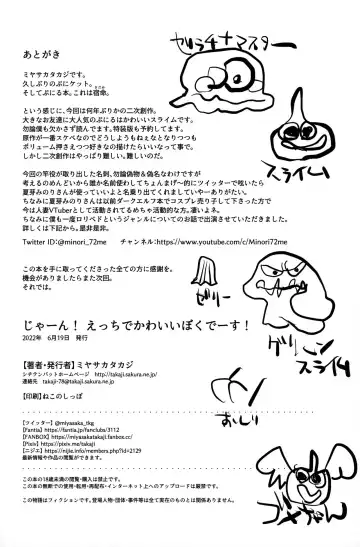 あとがき
ミヤサカタカジです。
久しぶりのぷにケット。
そしてぷにる本。これは宿命。
という感じに、今回は何年ぶりかの二次創作。
大きなお友達に大人気のぷにるはかわいいスライムです。
勿論僕も欠かさず読んでます。特装版も予約してます。
原作が一番スケベなのでどうしようもねぇなとなりつつも
ボリューム押さえつつ好きなの描けたらいいなって事で。
しかし二次創作はやっぱり難しい。難しいのだ。
今回の竿役が取り出した名刺、勿論偽物&偽名なわけですが
考えるのめんどいから誰か名前使わしてちょんまげ~的にツイッターで呟いたら
夏芽みのりさんが使っていいよと名乗り出てくれまして。いやーありがたい。
ちなみに夏芽みのりさんは以前ダークエルフ本でコスプレ売り子して下さった方で
今は人妻VTuberとして活動されてるめちゃ活動的な方。凄いよネ。
ちなみに僕も一度ロリペドというジャンルについてのお話で出演させていただきました。
詳しくは下記から。是非是非。
Twitter ID:@minori_72me　チャンネル:https://www.youtube.com/c/Minori72me
この本を手に取ってくださった全ての方に感謝を。
機会がありましたらまた次回。
それでは。
じゃーん！ えっちでかわいいぼくでーす！
2022年　6月19日　発行
【著者・発行者】ミヤサカタカジ
シチテンバットホームページ　http://takaji.sakura.ne.jp/
連絡先　takaji-78@takaji.sakura.ne.jp
【印刷】ねこのしっぽ
【ツイッター】@miyasaka_tkg
【Fantia】https://fantia.jp/fanclubs/3112
【FANBOX】https://miyasakatakaji.fanbox.cc/
【Pixiv】https://pixiv.me/takaji
【ニジエ】https://nijie.info/members.php?id=2129
最新情報や作品の閲覧ができます。
この本の18歳未満の閲覧・購入は禁止です。
この本の無断での使用・転用・再配布・インターネット上へのアップロードは厳禁です。
この物語はフィクションです。登場人物・団体・事件等は全て存在のものとは関係ありません。
ゼラチナマスター
スライム
ゼリー
グリーンスライム
おしり